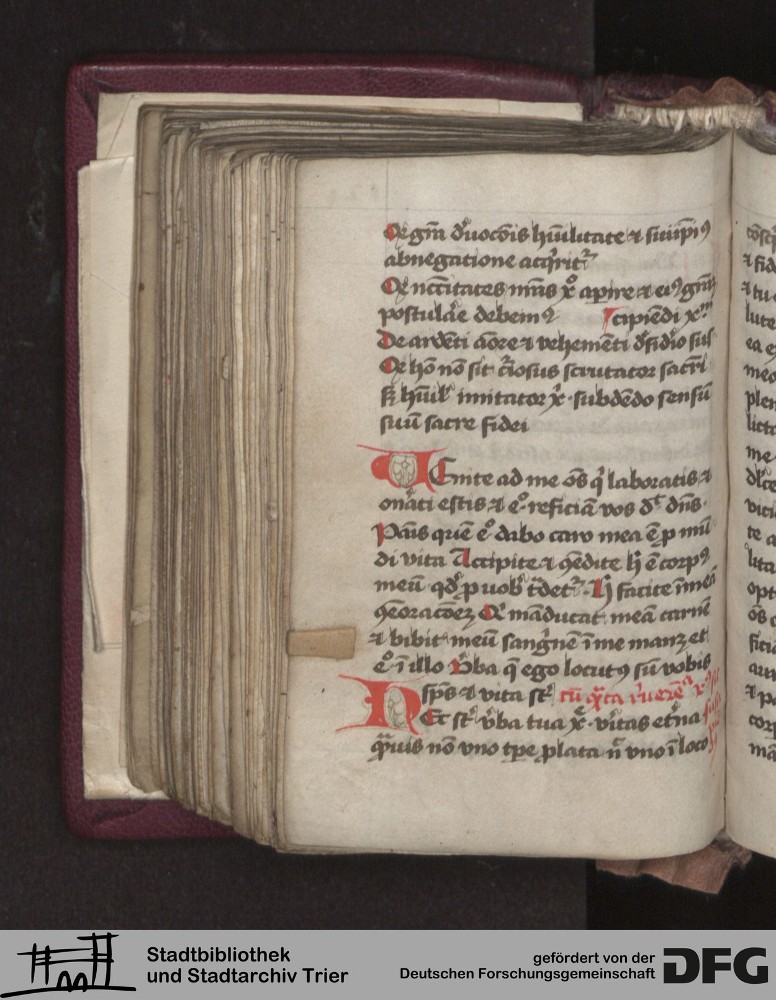 De gr̄a deuoc̄ōis hūilitate ⁊ suiip̄iꝰ
abnegatione acq̄ritꝛ
Qꝫ nccītates nr̄as xͦ apire ⁊ eiꝰ gr̄am
postulae debemꝰ cipiēdi xͫ
De ardēti aōre ⁊ vehemēti dsidio sus
Qꝫ hō nō sit c̄iosus scrutator sacri
sꝫ hūil imitator x̄ · subdēdo sensū
suū sacre fidei
Uenite ad me ōs q̇ laboratis ⁊
on̄ati estis ⁊ eͦ reficiā vos dͭ dn̄s ·
Panis quē eͦ dabo caro mea ē ꝓ mū
di vita Accipite ⁊ ꝯedite h̄ ē corpꝰ
meū qd̄ ꝓ uob t̄detꝛ · H̄ facite ī meā
ꝯeoracōeꝫ Qi māducat meā carnē
⁊ bibit meū sangnē ī me manꝫ et
eͦ ī illo Vba q̄ ego locutꝰ sū vobis
sp̄s ⁊ vita st̄
Ec st̄ v̄ba tua x̄ · v̄itas et̄na
qͣuis nō vno tp̄e ꝓlata n̄ vno ī loco
cor
⁊ fid
⁊ tu
lute
ea e
meo
plen
licto
me
dl̄ce
vici
te a
lita
opt
ōs
ficiā
⁊ p
corp
mā
Stadtbibliothek
und Stadtarchiv Trier
gefördert von der
Deutschen Forschungsgemeinschaft
DFG